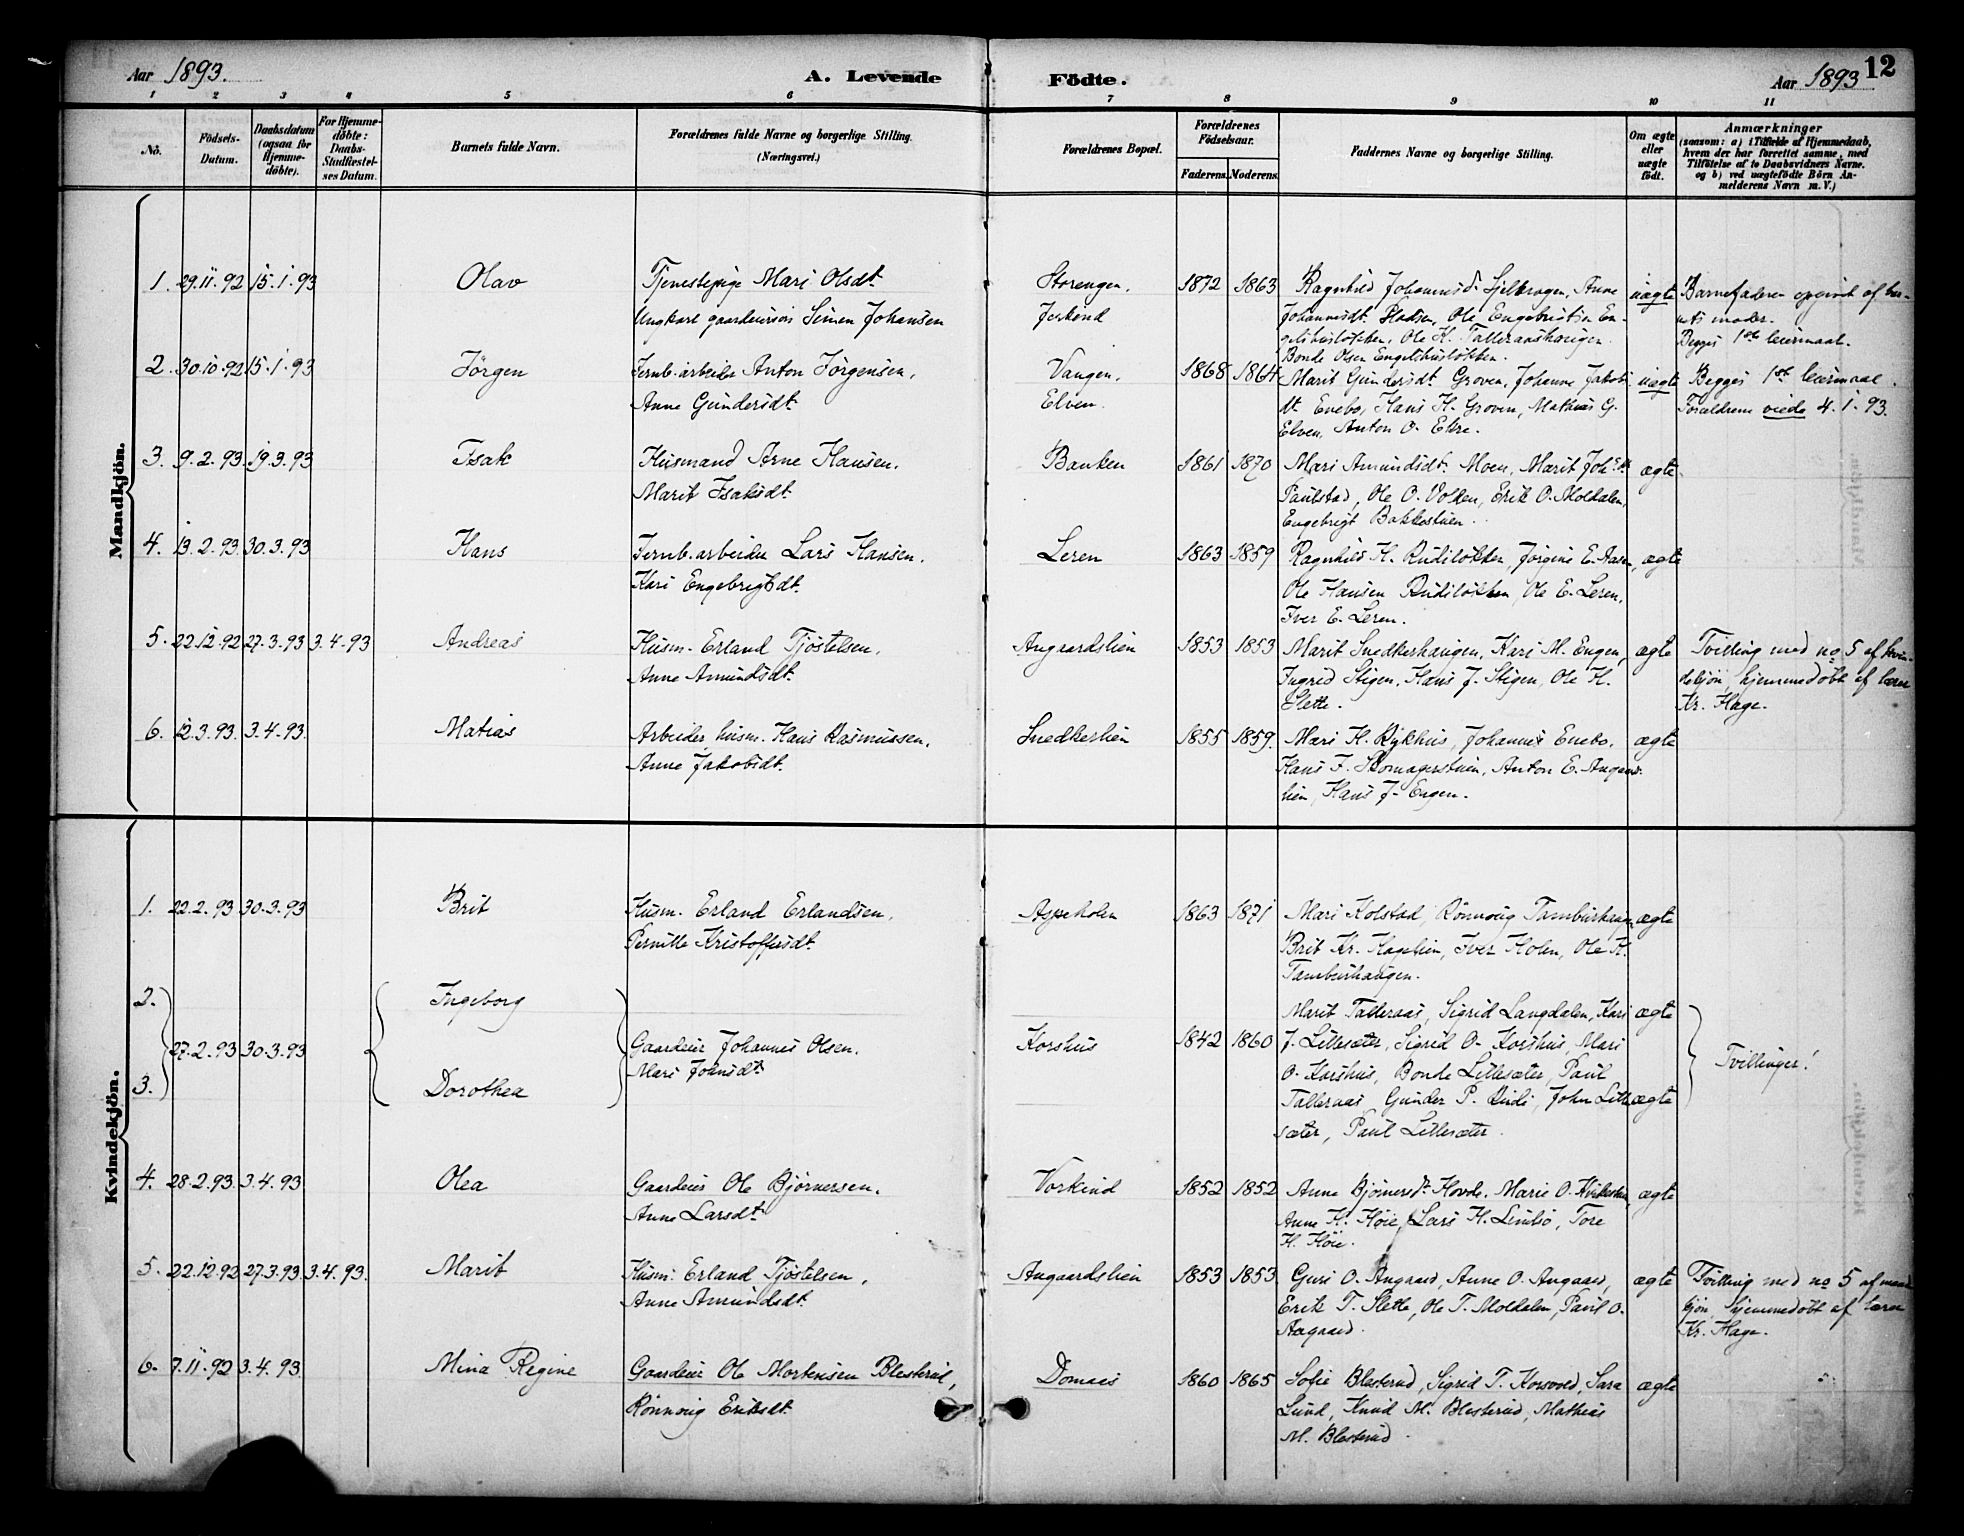 Aar 1893.
A. Levende Födte.
Aar 1893
12
1 2 3 4 5 6 7 8 9 10 11
No.
Födsels-Datum.
Daabsdatum (ogsaa for Hjemme-döbte).
For Hjemme-döbte: Daabs-Stadfæstel-ses Datum.
Barnets fulde Navn.
Forældrenes fulde Navne og borgerlige Stilling.
(Næringsvei.)
Forældrenes Bopæl.
Forældrenes Födselsaar.
Faderens. Moderens.
Faddernes Navne og borgerlige Stilling.
Om ægte eller uægte födt.
Anmærkninger
(saasom: a) i Tilfælde af Hjemmedaab, hvem der har forrettet samme, med Tilföielse af to Daabsvidners Navne. og b) ved uægtefödte Börn An-melderens Navn m. V.)
Mandkjön.
1. 29.11.92 15.1.93 Olav Tjenestepige Mari Olsdt. Storengen. 1872 1863 Johannesd. Anne uægte Barnefaderen opgivet af bar-
Ungkarl gaardeiersøn Simen Johansen Johannesdt. Ole nets moder.
Ole K. Begges 1ste leiermaal.
Bonde Olsen Engelshusløkken.
2. 30.10.92 15.1.93 Jörgen Jernb.arbeider Anton Jörgensen, Vangen, 1868 1864 Marit Gundersdt. Groven, Johanne Jakobs uægte Begges 1ste leiermaal.
Anne Gundersdt. Elven. dt. Enebo, Hans H. Groven, Mathias G. Forældrene viede 4.1.93.
Elven, Anton O. Ekre.
3. 9.2.93. 19.3.93 Isak Husmand Arne Hansen. Banken 1861 1870 Mari Amundsdt. Moen, Marit Joh's dt. ægte
Marit Isaksdt. Paulstad, Ole O. Volden, Erik O. Moldalen,
Engebrigt Bakkestuen.
4. 13.2.93 30.3.93 Hans Jernb.arbeider Lars Hansen. Leren 1863 1859 Ragnhild H. Rudiløkken, Jørgine E. Aasen, ægte
Kari Engebrigtsdt. Ole Hansen Rudiløkken, Ole E. Leren,
Iver E. Leren.
5. 22.12.92 27.3.93 3.4.93 Andreas Husm. Erland Tjøstelsen. Angaardslien 1853 1853 Marit Snedkerhaugen, Kari M. Engen, ægte Tvilling med no 5 af kvin-
Anne Amundsdt. Ingrid Stigen, Hans J. Stigen, Ole H. dekjøn, hjemmedøbt af lærer
Slette. Kr. Hage.
6. 12.3.93. 3.4.93. Matias Arbeider, husm. Hans Rasmussen. Snedkerlien 1855 1859. Mari H. Rykhus, Johannes Enebo. ægte
Anne Jakobsdt. Hans J. Skomagerstuen, Anton E. Angaards-
lien, Hans J. Engen.
Kvindekjön.
1. 22.2.93 30.3.93 Brit Husm. Erland Erlandsen. Aspeholen 1863 1871 Mari Kolstad, Rönnoug Tamburhaugen, ægte
Pernille Kristoffersdt. Brit Kr. Hagelien, Iver Holen, Ole K.
Tamburhaugen.
2. Ingeborg Marit Talleraas, Sigrid Langdalen, Kari ægte
27.2.93 30.3.93 Gaardeier Johannes Olsen. Korshus 1842 1860 J. Lillesæter, Sigrid O. Korshus, Mari Tvillinger!
Mari Johnsdt. O. Korshus, Bonde Lillesæter, Paul
3. Dorothea Talleraas, Gunder P. Rudi, John Lille- ægte
sæter, Paul Lillesæter.
4. 28.2.93. 3.4.93. Olea Gaardeier Ole Bjørnersen. Vorkind 1852 1852 Anne Bjørnersdt. Hovde. Marie O. ægte
Anne Larsdt. Anne H. Høie, Lars H. Tore
H. Høie.
5. 22.12.92 27.3.93 3.4.93. Marit Husm. Erland Tjøstelsen, Angaardslien 1853 1853. Guri O. Angaard, Anne O. Angaard, ægte Tvilling med no 5 af mand-
Anne Amundsdt. Erik T. Slette, Ole T. Moldalen, Paul O. kjøn, hjemmedøbt af lærer
Angaard. Kr. Hage.
6. 7.11.92 3.4.93 Mina Regine Gaardeier Ole Mortensen Blesterud, Domaas 1860 1865 Sofie Blesterud, Sigrid T. Korsvold, Sara ægte
Rönnoug Eriksdt. Lund, Knud M. Blesterud, Mathias
M. Blesterud.